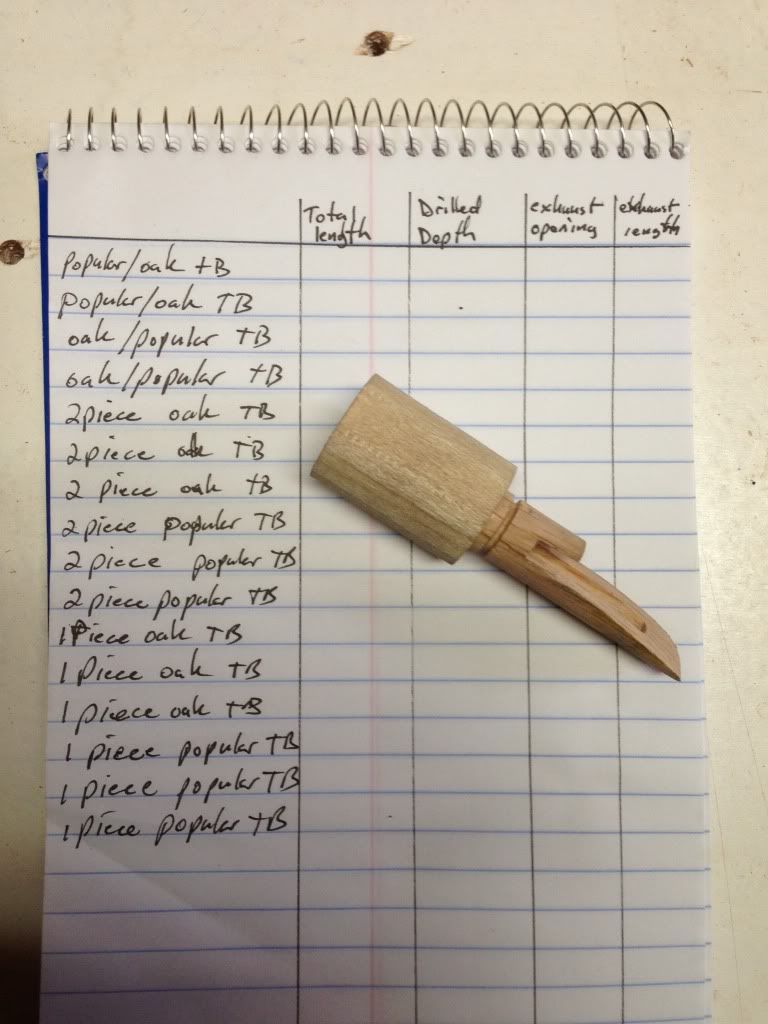 Total length
Drilled Depth
exhaust opening
exhaust length
popular/oak TB
popular/oak TB
oak/popular TB
oak/popular TB
2 piece oak TB
2 piece oak TB
2 piece oak TB
2 piece popular TB
2 piece popular TB
2 piece popular TB
1 Piece oak TB
1 piece oak TB
1 piece oak TB
1 piece popular TB
1 piece popular TB
1 piece popular TB